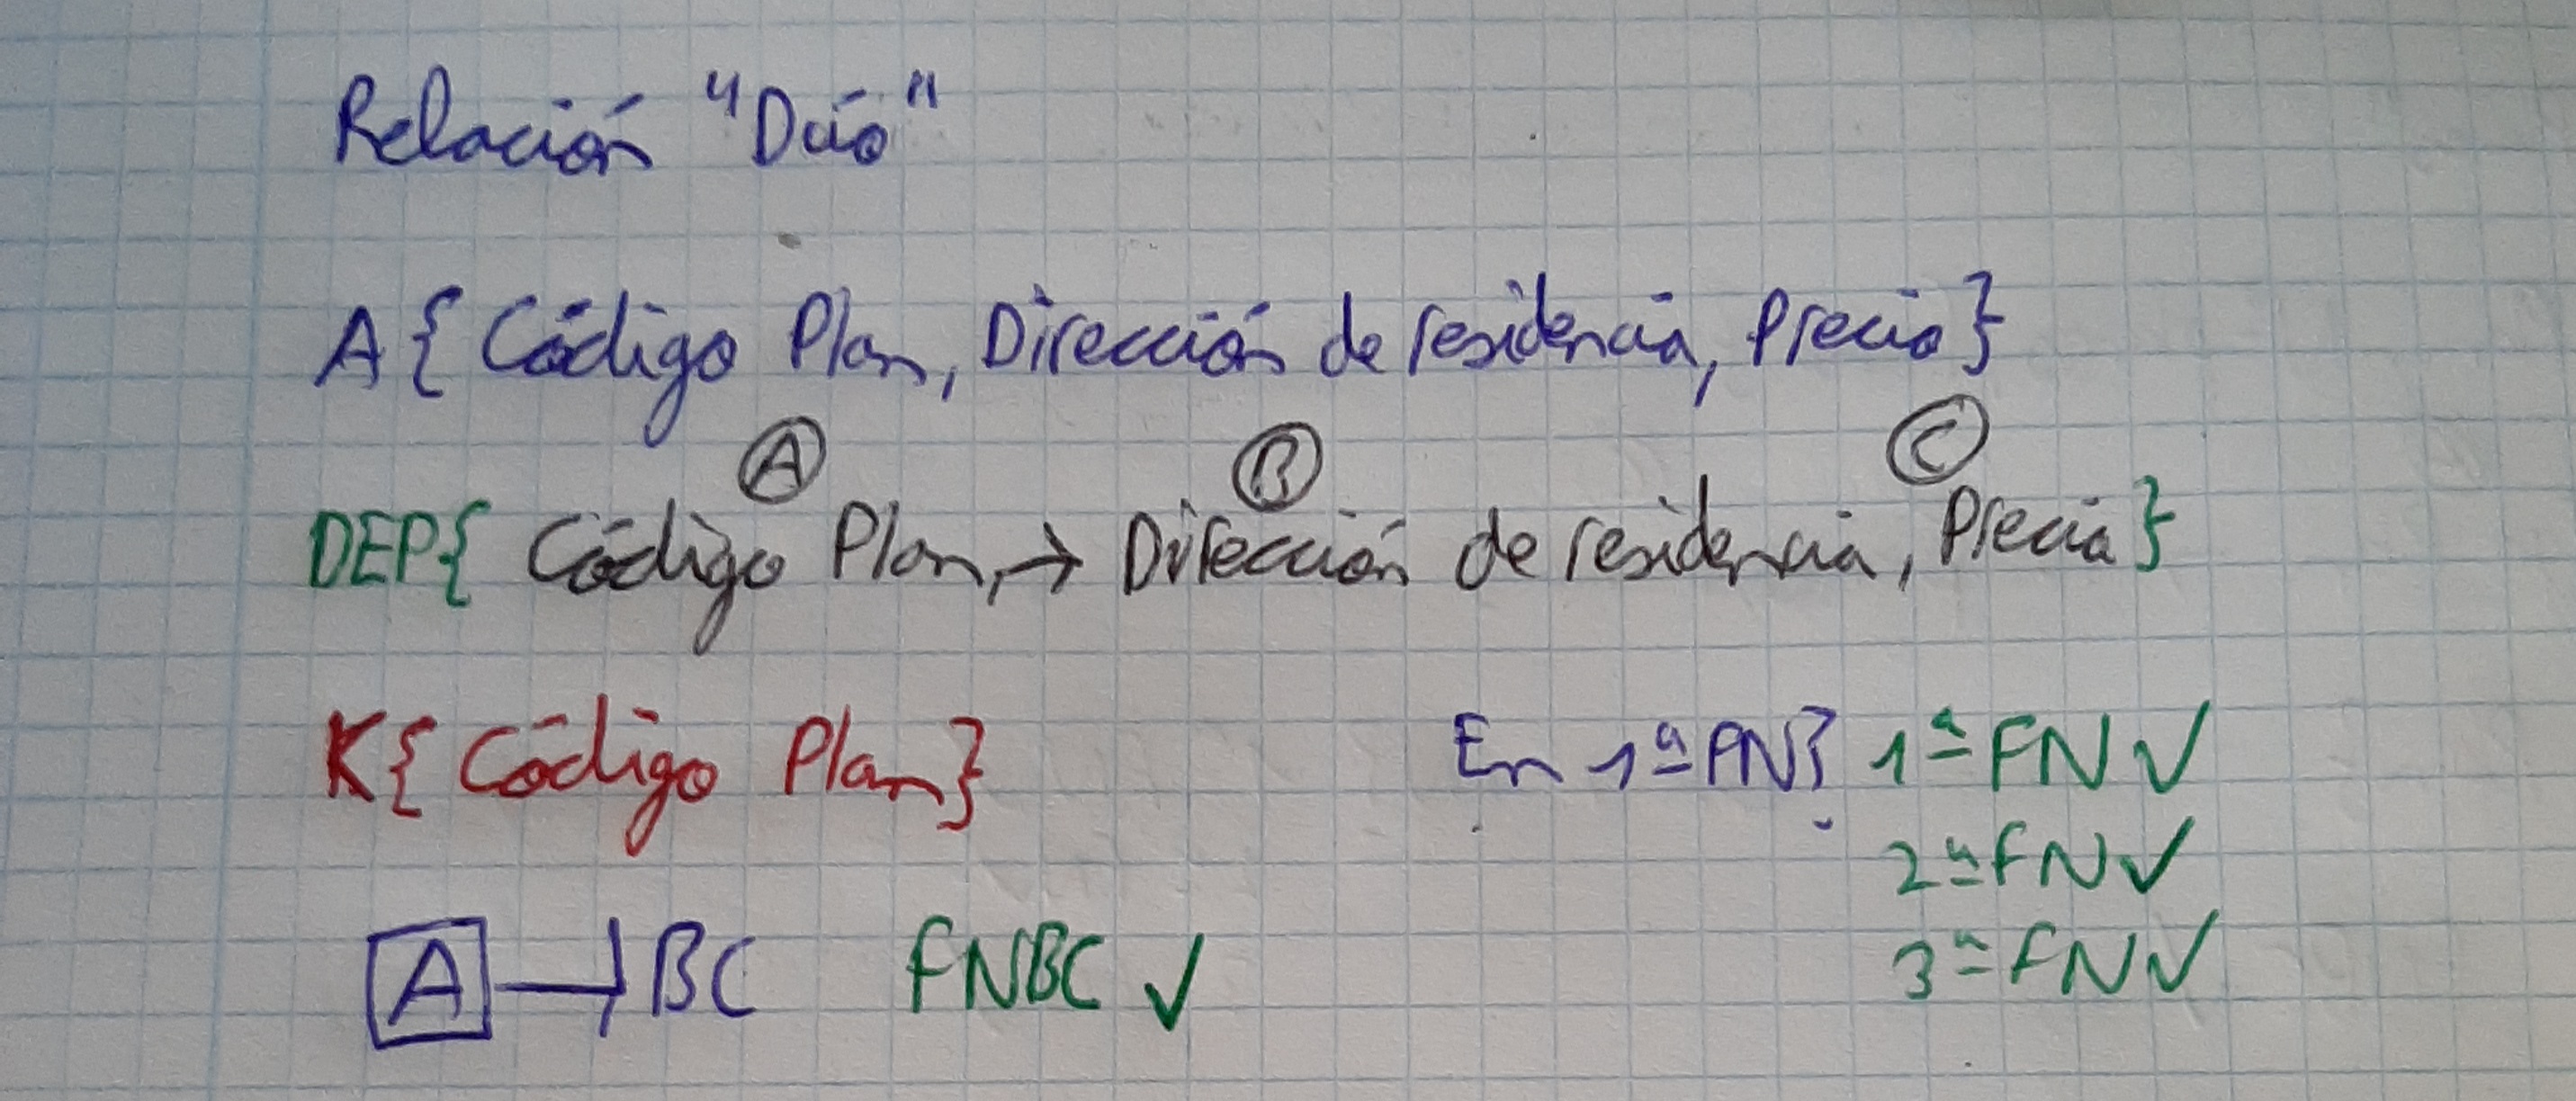 Relación "Dúo"
A{ Código Plan, Dirección de residencia, Precio}
A B C
DEP{ Código Plan, → Dirección de residencia, Precio}
K{ Código Plan} En 1ª FN} 1ª FN ✓
2ª FN ✓
3ª FN ✓
A → BC FNBC ✓